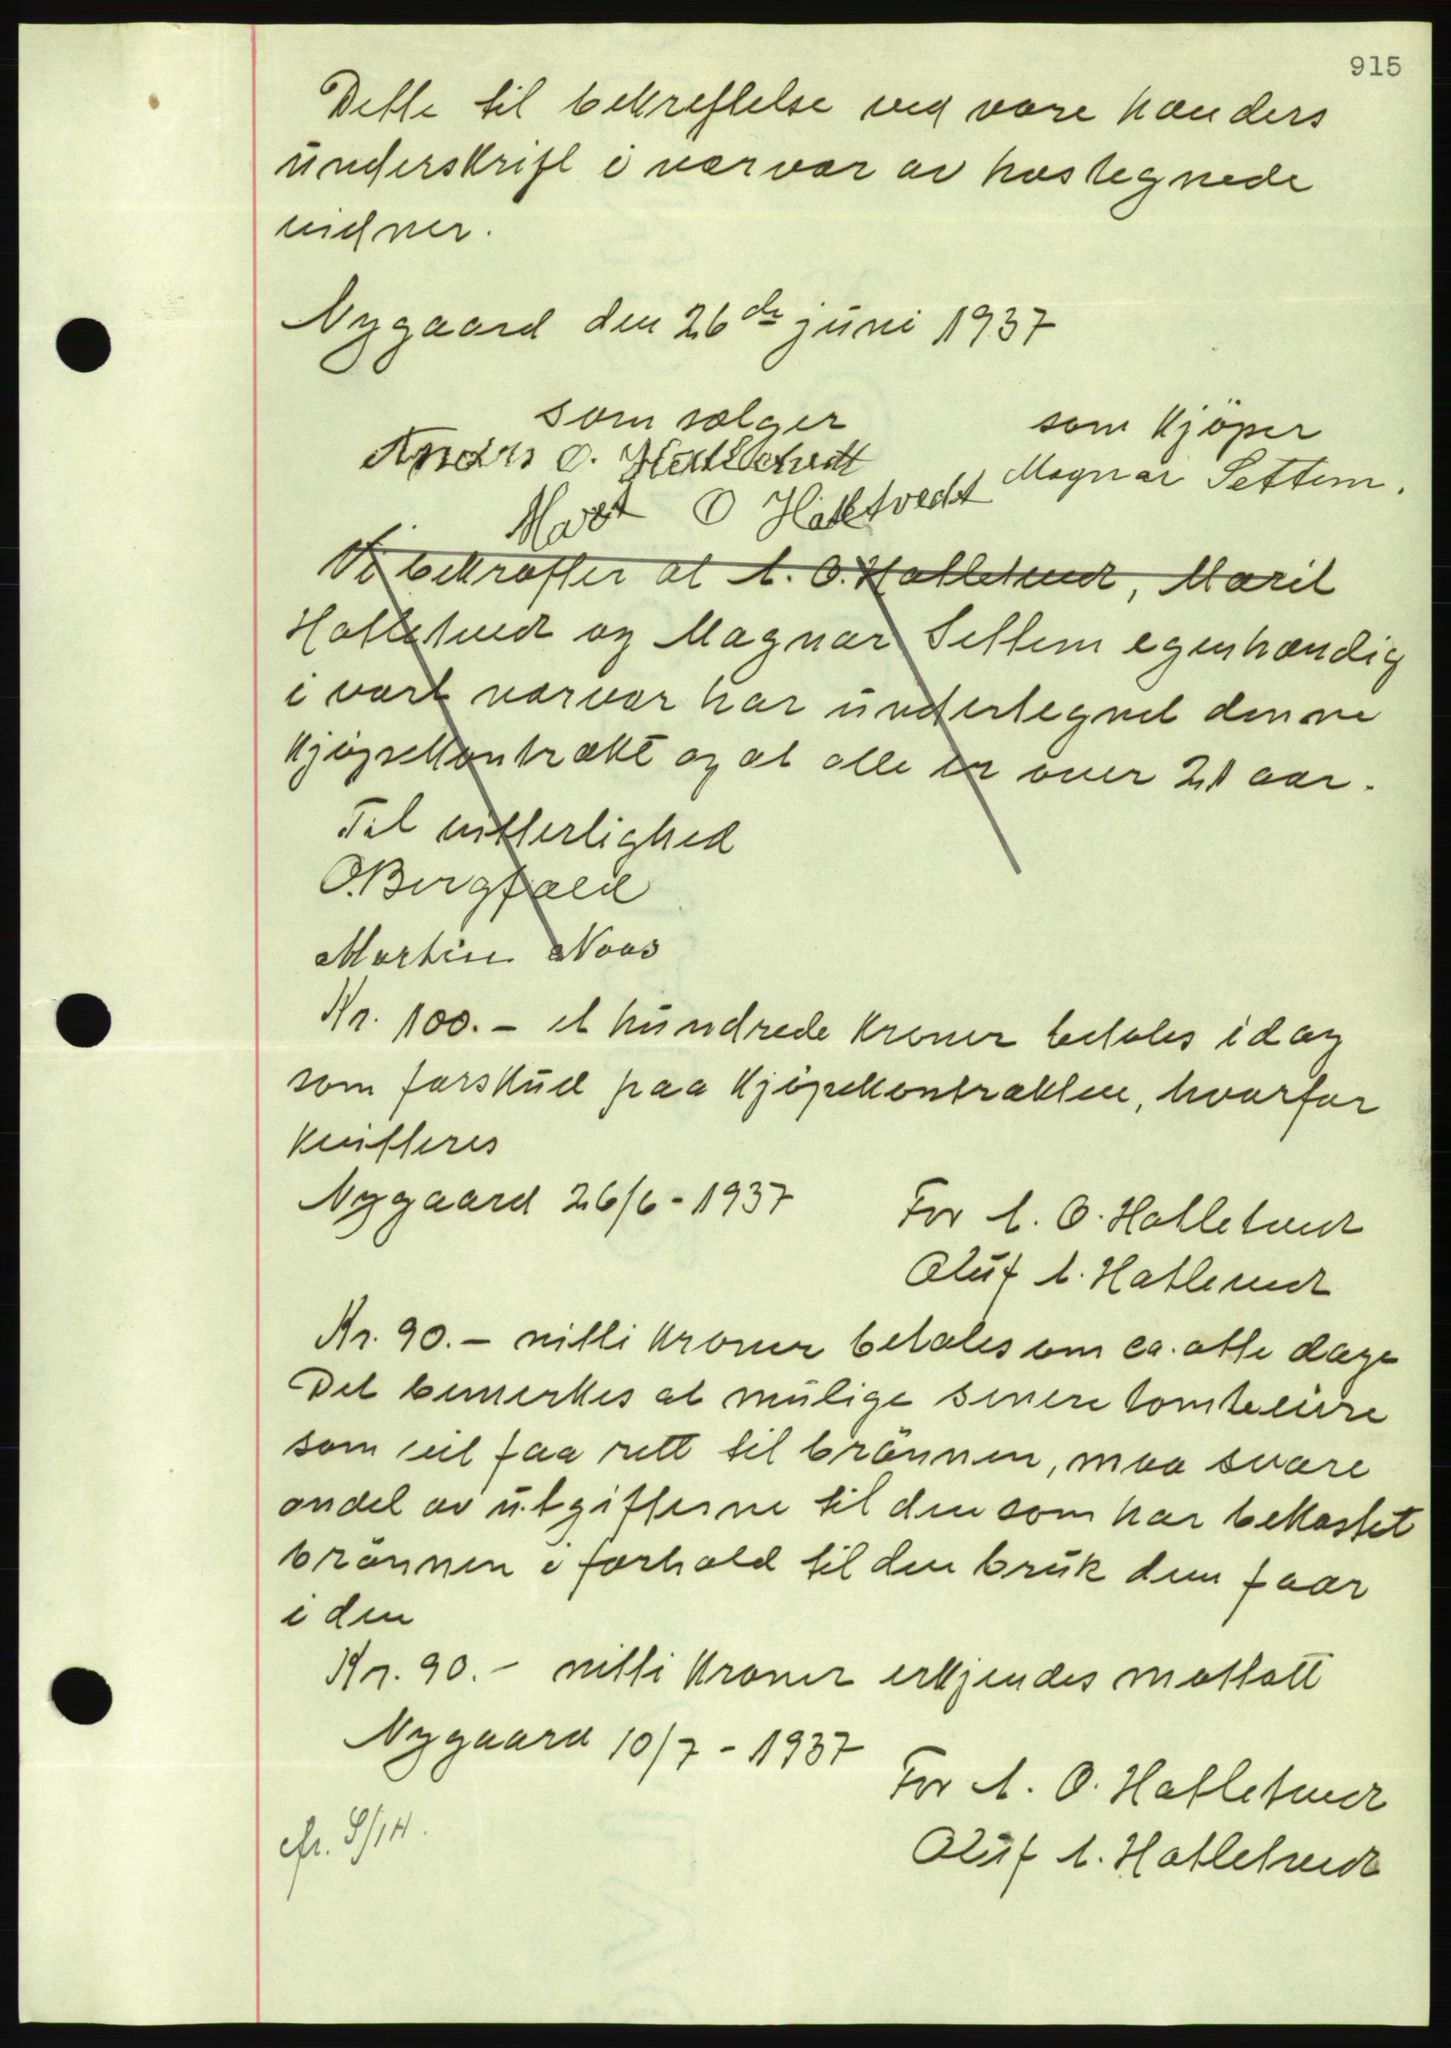 915
Dette til bekreftelse ved vore hænders
underskrift i nærvær av hostegnede
vidner.
Nygaard den 26de juni 1937
som sælger
som kjöper
Anders O. Hatletvedt
Magnar Settem.
Marit O Hatletvedt
Vi bekræfter at A. O. Hatletvedt, Marit
Hatletvedt og Magnar Settem egenhændig
i vort nærvær har undertegnet denne
kjöpekontrakt og at alle er over 21 aar.
Til vitterlighed
O. Bergfald
Martin Naas
Kr. 100.- et hundrede kroner betales idag
som forskud paa kjöpekontrakten, hvorfor
kvitteres
Nygaard 26/6-1937
For A. O. Hatletvedt
Oluf A. Hatletvedt
Kr. 90.- nitti kroner betales om ca. otte dage
Det bemerkes at mulige senere tomteeiere
som vil faa rett til brönnen, maa svare
andel av utgifterne til den som har bekostet
brönnen i forhold til den bruk dem faar
i den
Kr. 90.- nitti kroner erkjendes mottatt
Nygaard 10/7-1937
For A. O. Hatletvedt
Oluf A. Hatletvedt
cfr. 9/14.